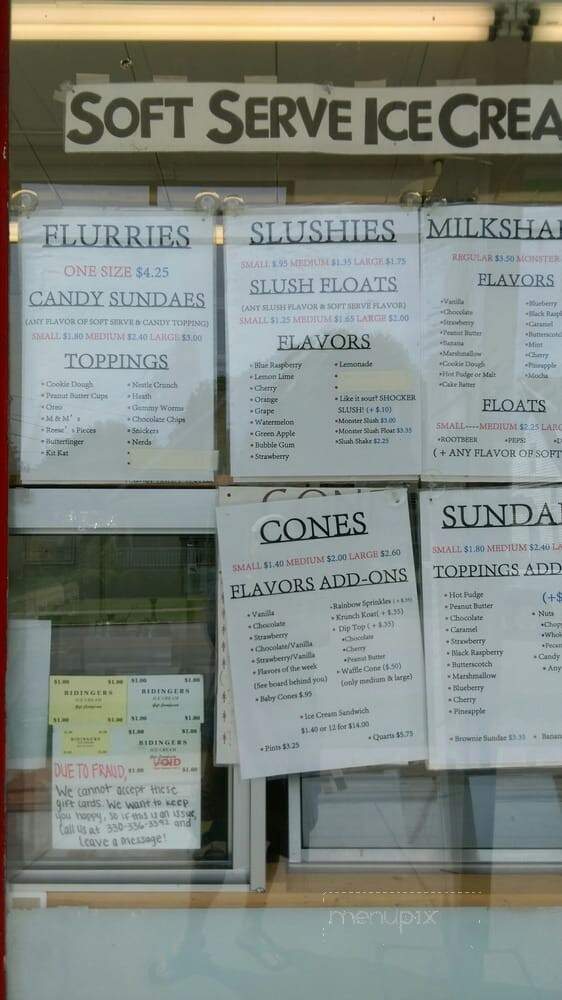 SOFT SERVE ICE CREA
FLURRIES
ONE SIZE $4.25
CANDY SUNDAES
(ANY FLAVOR OF SOFT SERVE & CANDY TOPPING)
SMALL $1.80 MEDIUM $2.40 LARGE $3.00
TOPPINGS
• Cookie Dough
• Peanut Butter Cups
• Oreo
• M & M's
• Reese's Pieces
• Butterfinger
• Kit Kat
• Nestle Crunch
• Heath
• Gummy Worms
• Chocolate Chips
• Snickers
• Nerds
SLUSHIES
SMALL $.95 MEDIUM $1.35 LARGE $1.75
SLUSH FLOATS
(ANY SLUSH FLAVOR & SOFT SERVE FLAVOR)
SMALL $1.25 MEDIUM $1.65 LARGE $2.00
FLAVORS
• Blue Raspberry
• Lemon Lime
• Cherry
• Orange
• Grape
• Watermelon
• Green Apple
• Bubble Gum
• Strawberry
• Lemonade
• Like it sour? SHOCKER
SLUSH! (+ $.10)
•Monster Slush $3.00
•Monster Slush Float $3.35
•Slush Shake $2.25
MILKSHA
REGULAR $3.50 MONSTER
FLAVORS
•Vanilla
•Chocolate
•Strawberry
•Peanut Butter
•Banana
•Marshmallow
•Cookie Dough
•Hot Fudge or Malt
•Cake Batter
•Blueberry
•Black Raspb
•Caramel
•Butterscotc
•Mint
•Cherry
•Pineapple
•Mocha
FLOATS
SMALL----MEDIUM $2.25 LARG
•ROOTBEER •PEPSI •D
( + ANY FLAVOR OF SOFT
CONES
SMALL $1.40 MEDIUM $2.00 LARGE $2.60
FLAVORS ADD-ONS
• Vanilla
• Chocolate
• Strawberry
• Chocolate/Vanilla
• Strawberry/Vanilla
• Flavors of the week
(See board behind you)
• Baby Cones $.95
•Rainbow Sprinkles (+$.35)
• Krunch Koat( + $.35)
• Dip Top ( + $.35)
•Chocolate
•Cherry
•Peanut Butter
• Waffle Cone ($.50)
(only medium & large)
•Ice Cream Sandwich
$1.40 or 12 for $14.00
• Pints $3.25
• Quarts $5.75
SUNDA
SMALL $1.80 MEDIUM $2.40 LA
TOPPINGS ADD
• Hot Fudge
• Peanut Butter
• Chocolate
• Caramel
• Strawberry
• Black Raspberry
• Butterscotch
• Marshmallow
• Blueberry
• Cherry
• Pineapple
(+$
• Nuts
•Chop
•Whol
•Pecan
• Candy
• Any
• Brownie Sundae $3.35 • Banan
$1.00 $1.00
BIDINGERS
ICE CREAM
$1.00 $1.00
$1.00 $1.00
BIDINGERS
ICE CREAM
$1.00 $1.00
BIDINGERS
ICE CREAM
$1.00
BIDINGERS
ICE CREAM
$1.00 VOID
DUE TO FRAUD,
We cannot accept these
gift cards. We want to keep
you happy, so if this is an issue,
Call us at 330-336-3392 and
leave a message!
menupix